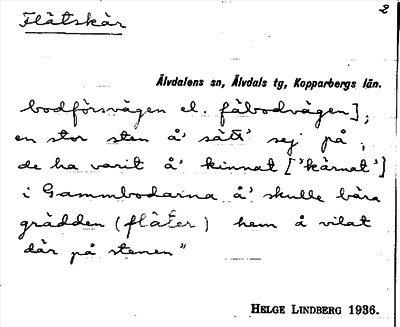 Flätskär
2
Älvdalens sn, Älvdals tg, Kopparbergs län.
bodförsvägen el. fäbodvägen];
en stor sten å' sätt' sej på;
de ha varit å' kinnat ['kärnat']
i Gammbodarna å' skulle bära
grädden (fläter) hem å vilat
där på stenen"
HELGE LINDBERG 1936.